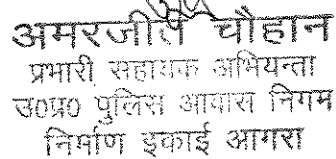 अमरजीत चौहान
प्रभारी सहायक अभियन्ता
उ०प्र० पुलिस आवास निगम
निर्माण इकाई आगरा